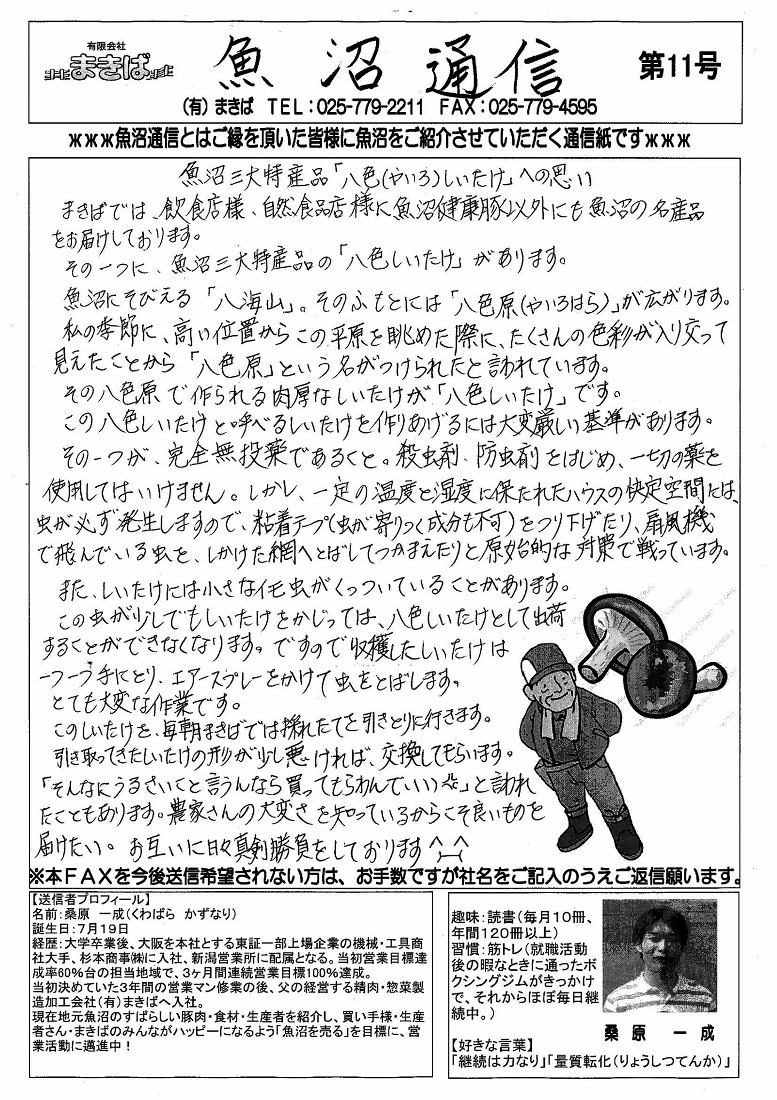 有限会社
まきば
魚沼通信
第11号
(有) まきば TEL:025-779-2211 FAX:025-779-4595
ЖЖЖ魚沼通信とはご縁を頂いた皆様に魚沼をご紹介させていただく通信紙ですЖЖЖ
魚沼三大特産品「八色(やいろ)しいたけ」への思い
まきばでは、飲食店様、自然食品店様に魚沼健康豚以外にも魚沼の名産品
をお届けしております。
その一つに、魚沼三大特産品の「八色しいたけ」があります。
魚沼にそびえる「八海山」。そのふもとには「八色原(やいろはら)」が広がります。
私の季節に、高い位置からこの平原を眺めた際に、たくさんの色彩が入り交って
見えたことから「八色原」という名がつけられたと言われています。
その八色原で作られる肉厚なしいたけが「八色しいたけ」です。
この八色しいたけと呼べるしいたけを作りあげるには大変厳しい基準があります。
その一つが、完全無投薬であること。殺虫剤、防虫剤をはじめ、一切の薬を
使用してはいけません。しかし、一定の温度と湿度に保たれたハウスの快定空間には、
虫が必ず発生しますので、粘着テープ(虫が寄りつく成分も不可)をつり下げたり、扇風機
で飛んでいる虫を、しかけた網へとばしてつかまえたりと原始的な対策で戦っています。
また、しいたけには小さなイモ虫がくっついていることがあります。
この虫が少しでもしいたけをかじっては、八色しいたけとして出荷
することができなくなります。ですので収穫したしいたけは
一つ一つ手にとり、エアースプレーをかけて虫をとばします。
とても大変な作業です。
このしいたけを、毎朝まきばでは採れたてを引きとりに行きます。
引き取ってきたしいたけの形が少し悪ければ、交換してもらいます。
「そんなにうるさいこと言うんなら買ってもらわんでいい」と言われ
たこともあります。農家さんの大変さを知っているからこそ良いものを
届けたい。お互いに日々真剣勝負をしております^_^
※本FAXを今後送信希望されない方は、お手数ですが社名をご記入のうえご返信願います。
【送信者プロフィール】
名前:桑原 一成(くわばら かずなり)
誕生日:7月19日
経歴:大学卒業後、大阪を本社とする東証一部上場企業の機械・工具商
社大手、杉本商事㈱に入社、新潟営業所に配属となる。当初営業目標達
成率60%台の担当地域で、3ヶ月間連続営業目標100%達成。
当初決めていた3年間の営業マン修業の後、父の経営する精肉・惣菜製
造加工会社(有)まきばへ入社。
現在地元魚沼のすばらしい豚肉・食材・生産者を紹介し、買い手様・生産
者さん・まきばのみんながハッピーになるよう「魚沼を売る」を目標に、営
業活動に邁進中！
趣味:読書(毎月10冊、
年間120冊以上)
習慣:筋トレ(就職活動
後の暇なときに通ったボ
クシングジムがきっかけ
で、それからほぼ毎日継
続中。)
桑原 一成
【好きな言葉】
「継続は力なり」「量質転化(りょうしつてんか)」